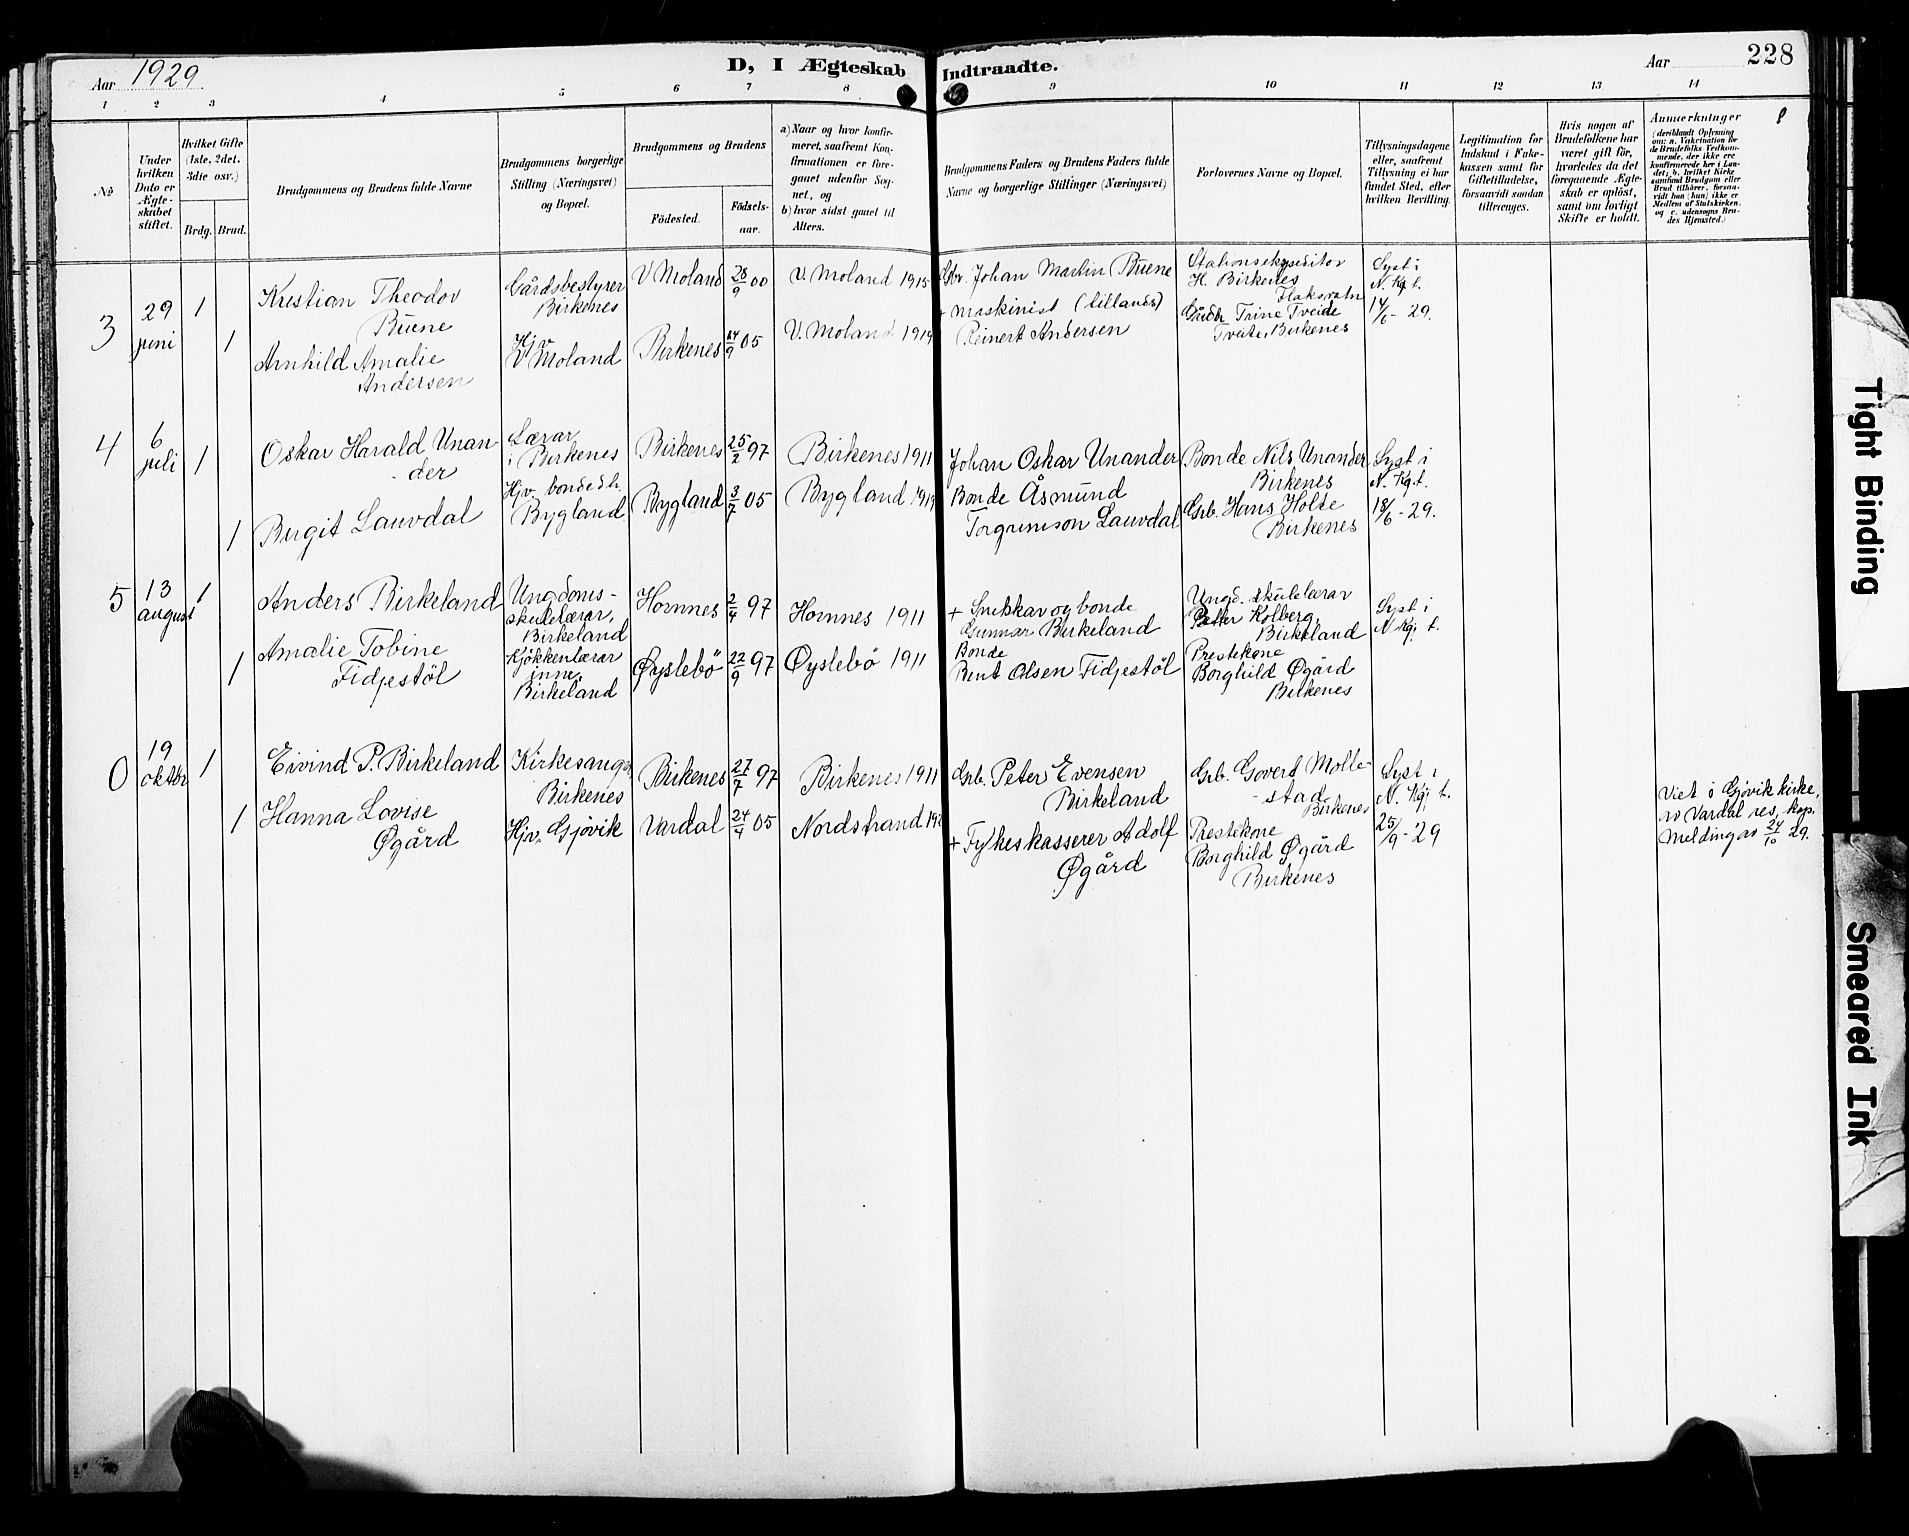 Aar 1929
D, I Ægteskab Indtraadte.
Aar
228
1 2 3 4 5 6 7 8 9 10 11 12 13 14
№
Under hvilken Dato er Ægteskabet stiftet.
Hvilket Gifte (1ste, 2det, 3die osv.)
Brdg. Brud.
Brudgommens og Brudens fulde Navne
Brudgommens borgerlige Stilling (Næringsvei) og Bopæl.
Brudgommens og Brudens
Fødested.
Fødselsaar.
a) Naar og hvor konfirmeret, saafremt Konfirmationen er foregaaet udenfor Sognet, og
b) hvor sidst gaaet til Alters.
Brudgommens Faders og Brudens Faders fulde Navne og borgerlige Stillinger (Næringsvei)
Forlovernes Navne og Bopæl.
Tillysningsdagene eller, saafremt Tillysning ei har fundet Sted, efter hvilken Bevilling.
Legitimation for Indskud i Enkekassen samt for Giftetilladelse, forsaavidt saadan tiltrænges.
Hvis nogen af Brudefolkene har været gift før, hvorledes da det foregaaende Ægteskab er opløst, samt om lovligt Skifte er holdt.
Anmerkninger
(deriblandt Oplysning om: a. Vakcination for de Brudefolks Vedkommende, der ikke ere konfirmerede her i Landet; b. hvilket Kirkesamfund Brudgom eller Brud tilhører, forsaavidt han (hun) ikke er Medlem af Statskirken, og c. udensogns Brudes Hjemsted.)
3
29 juni
1
Kristian Theodor Buene
Gårdsbestyrer Birkenes
V Moland
28/9 00
V. Moland 1915
Gbr. Johan Martin Buene
Stationsekspeditør H. Birkenes Flaksvatn
Lyst i N. Kg. t.
14/6 - 29.
1
Arnhild Amalie Andersen
Hjv V Moland
Birkenes
14/9 05
V. Moland 1919
+ Maskinist (Lillands) Reinert Andersen
Trine Tveide Tveite, Birkenes
4
6 juli
1
Oskar Harald Unander
Lærar i Birkenes
Birkenes
25/2 97
Birkenes 1911
Johan Oskar Unander
Bonde Nils Unander Birkenes
Lyst i N. Kg. t.
18/6 - 29.
1
Birgit Lauvdal
Hjv. bondedtr. Bygland
Bygland
3/7 05
Bygland 1919
Bonde Åsmund Torgrimson Lauvdal
Grb. Hans Holte Birkenes
5
13 august
1
Anders Birkeland
Ungdomsskulelærar, Birkeland
Hornnes
2/4 97
Hornnes 1911
+ Snekkar og bonde Gunnar Birkeland
Ungd. skulelærar Petter Kolberg, Birkeland
Lyst i N. Kg. t.
1
Amalie Tobine Fidjestöl
Kjökkenlærarinne, Birkeland
Øyslebö
22/9 97
Öyslebö 1911
Bonde Bent Olsen Fidjestöl
Prestekone Borghild Øgård Birkenes
0
19 oktbr
1
Eivind P. Birkeland
Kirkesanger Birkenes
Birkenes
27/7 97
Birkenes 1911
Grb. Peter Evensen Birkeland
Grb. Govert Mollestad Birkenes
Lyst i N. Kg. t.
25/9 - 29
1
Hanna Lovise Øgård
Hjv. Gjøvik
Vardal
24/4 05
Nordstrand
+ Fylkeskasserer Adolf Øgård
Prestekone Borghild Øgård Birkenes
Viet i Gjøvik kirke, av Vardal res. kap. Melding av 24/10 29.
Tight Binding
Smeared Ink